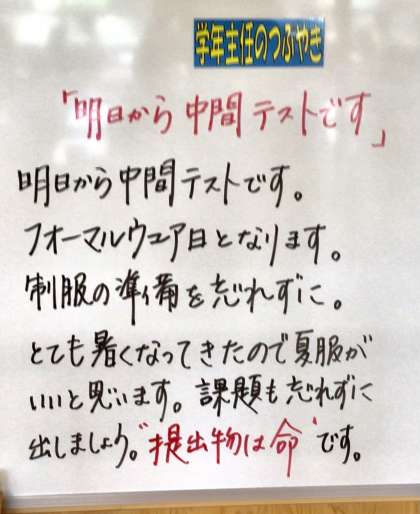 学年主任のつぶやき
「明日から中間テストです」
明日から中間テストです。
フォーマルウェア日となります。
制服の準備を忘れずに。
とても暑くなってきたので夏服が
いいと思います。課題も忘れずに
出しましょう。“提出物は命”です。